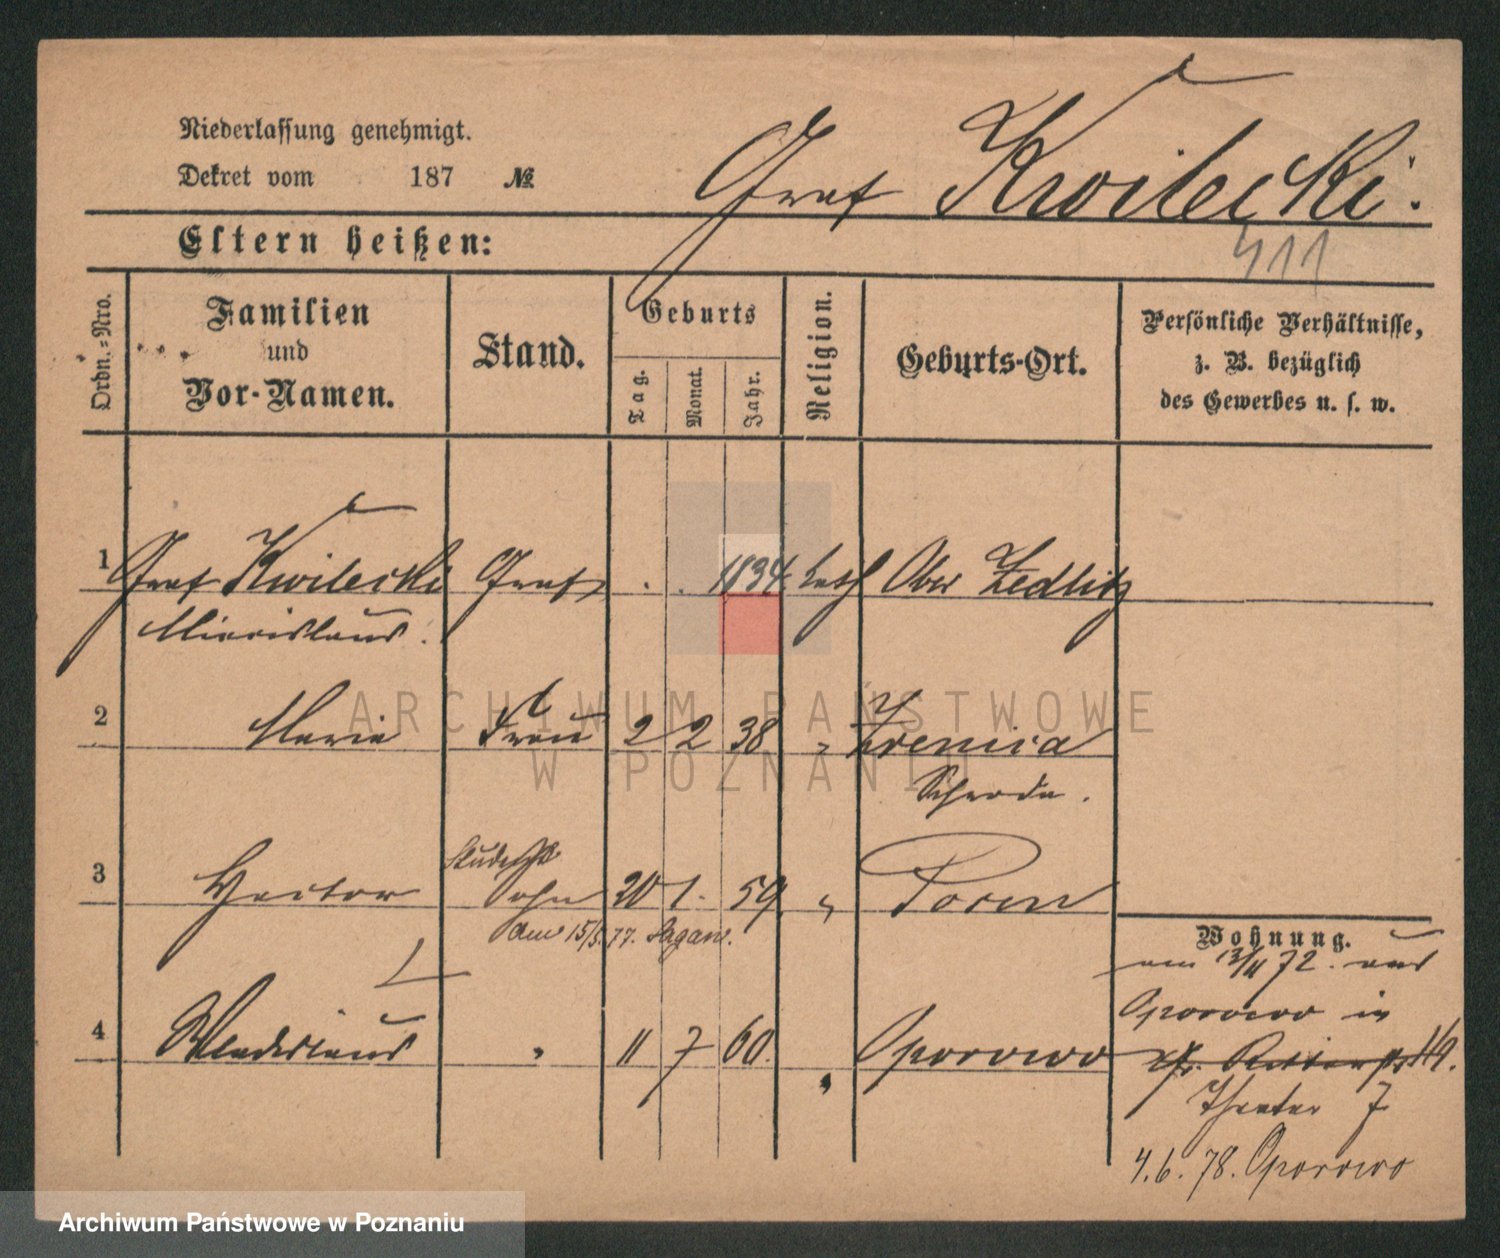 Niederlassung genehmigt.
Dekret vom 187 №
Graf Kwilecki.
411
Eltern heißen:
Ordn.-Nro.
Familien
und
Vor-Namen.
Stand.
Geburts
Tag.
Monat.
Jahr.
Religion.
Geburts-Ort.
Persönliche Verhältnisse,
z. B. bezüglich
des Gewerbes u. s. w.
1 Graf Kwilecki Graf . . 1834. kath Ober Zedlitz
Miecislaus.
2 Marie Frau 2 2 38 " Zrenica
Schroda.
3 Hector Sohn 20 1. 59 " Posen
am 15/5. 77. Sagan.
4 Wladislaus " 11 7 60. " Oporowo
Wohnung.
am 13/11 72. aus
Oporowo in
Theater 7
4.6.78. Oporowo
ARCHIWUM PAŃSTWOWE
W POZNANIU
Archiwum Państwowe w Poznaniu